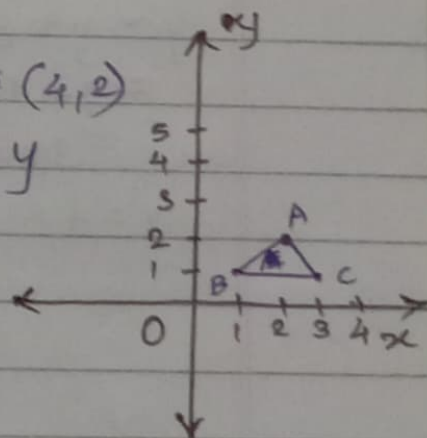 y
(4,2)
y
5
4
3
2
1
A
B
C
0
1 2 3 4 x